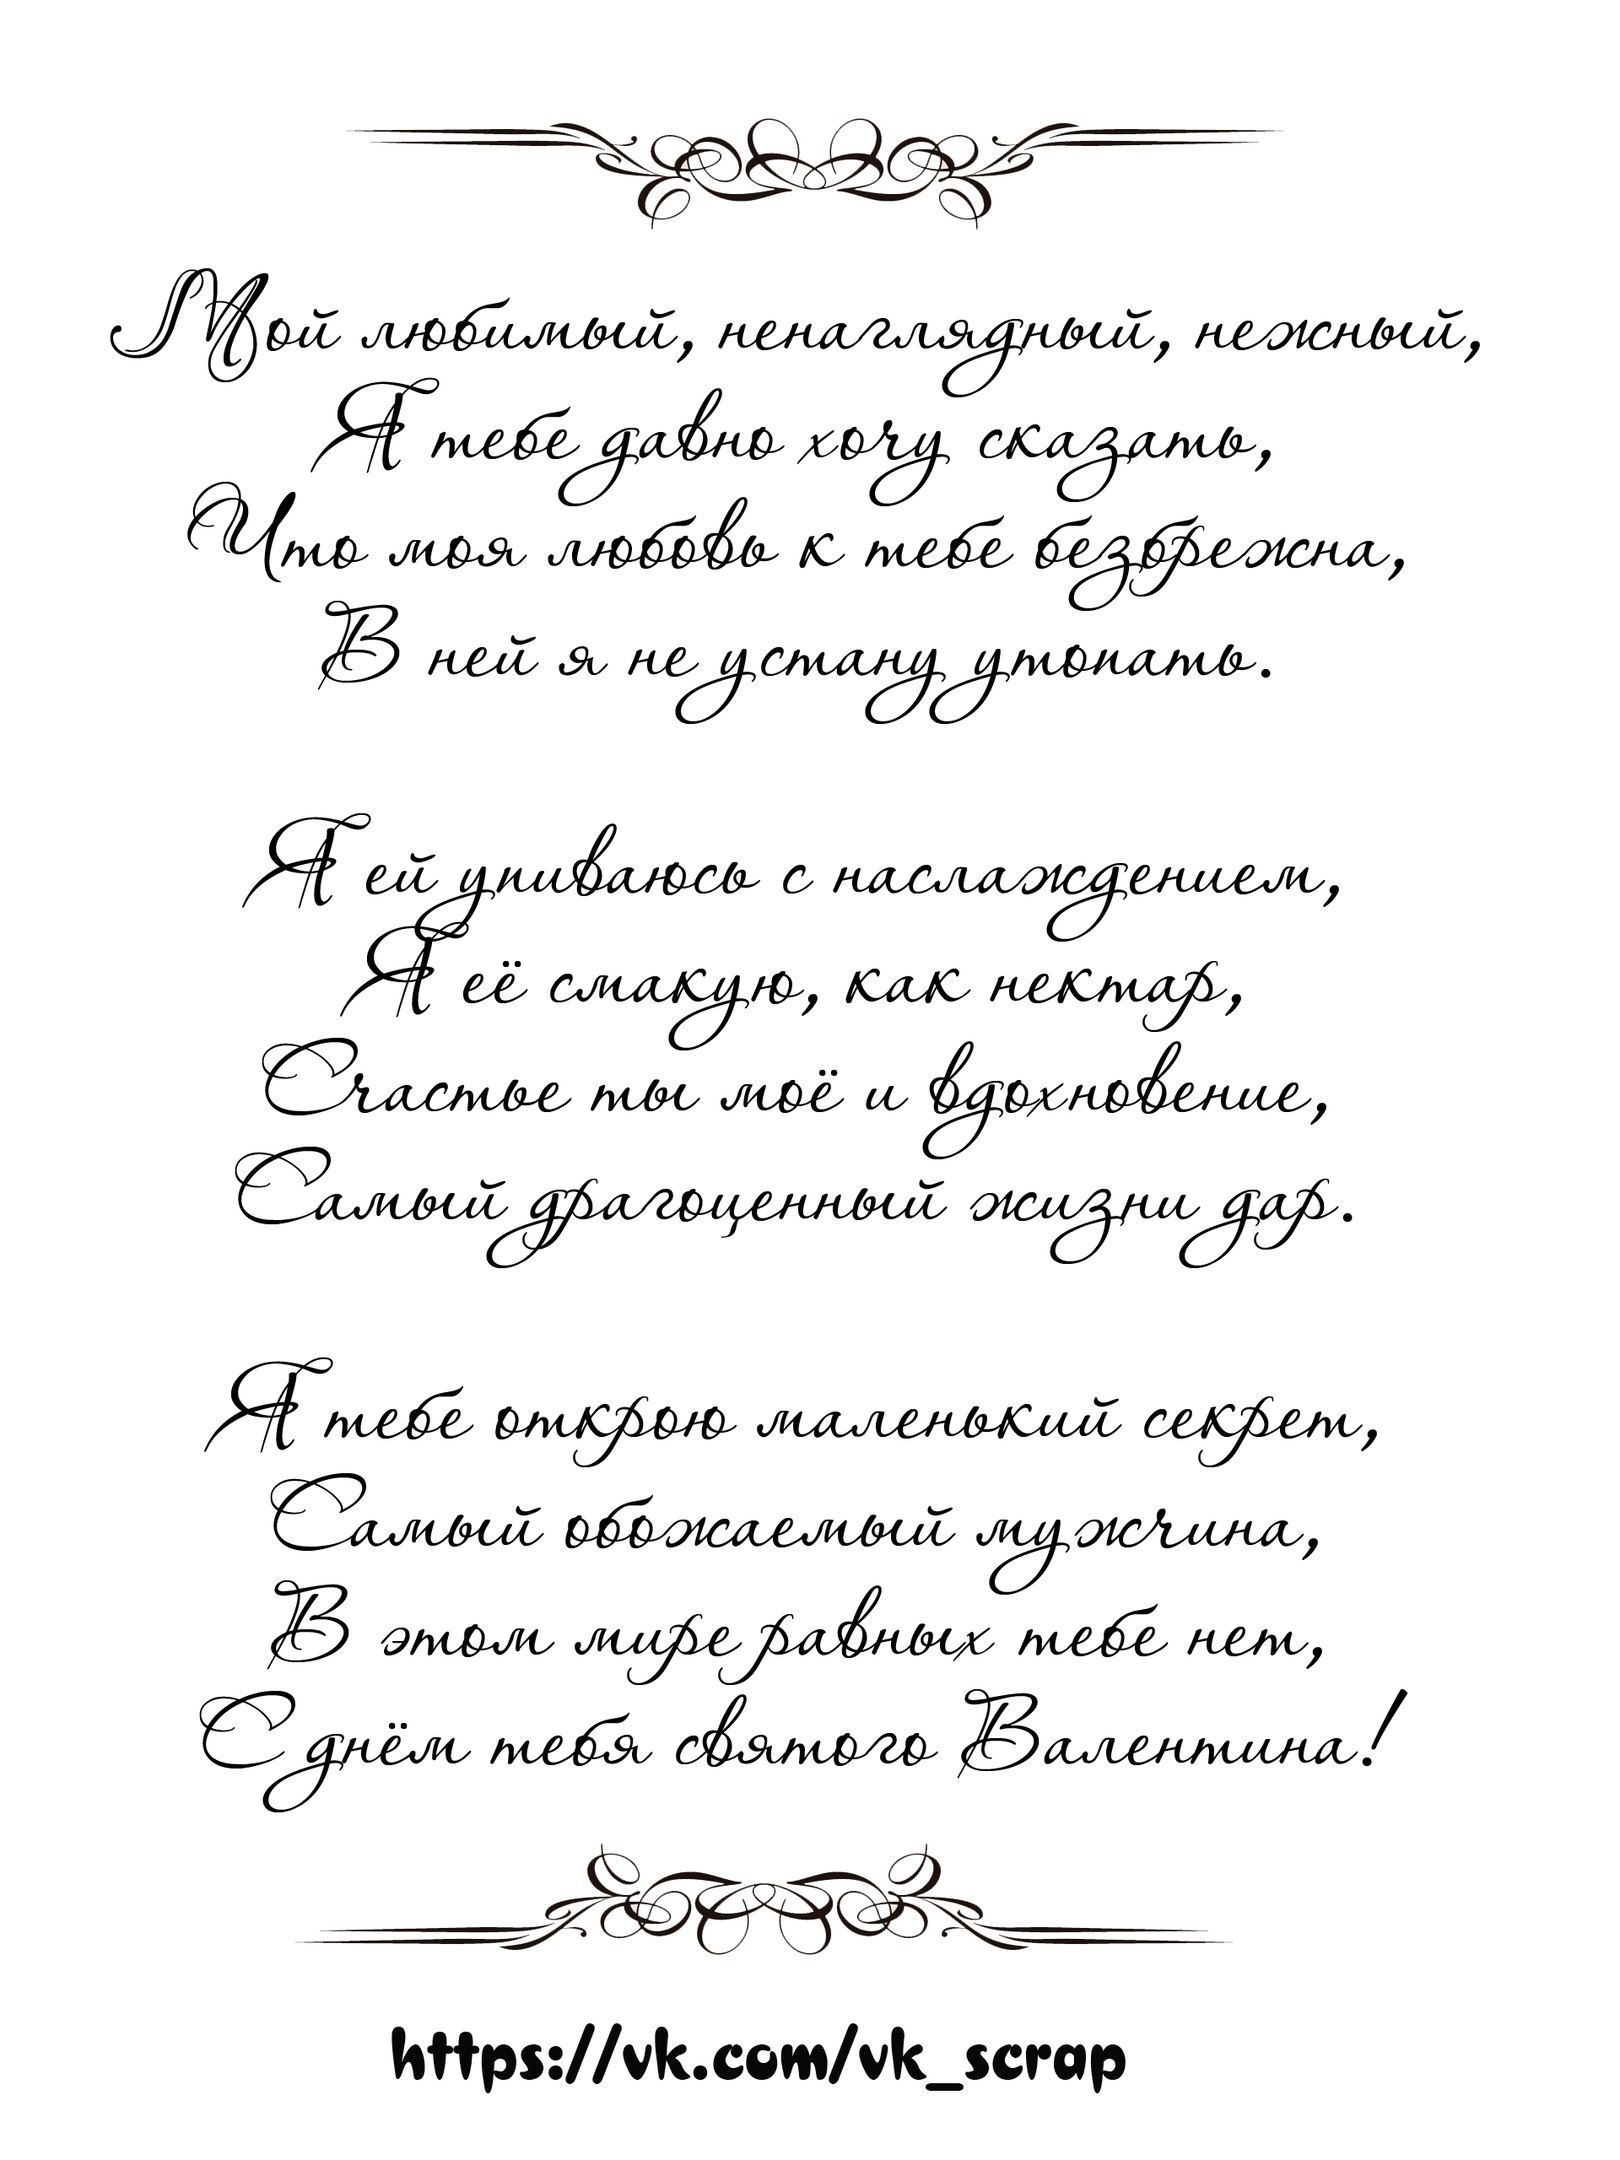 Мой любимый, ненаглядный, нежный,
Я тебе давно хочу сказать,
Что моя любовь к тебе безбрежна,
В ней я не устану утопать.
Я ей упиваюсь с наслаждением,
Я её смакую, как нектар,
Счастье ты моё и вдохновение,
Самый драгоценный жизни дар.
Я тебе открою маленький секрет,
Самый обожаемый мужчина,
В этом мире равных тебе нет,
С днём тебя святого Валентина!
https://vk.com/vk_scrap